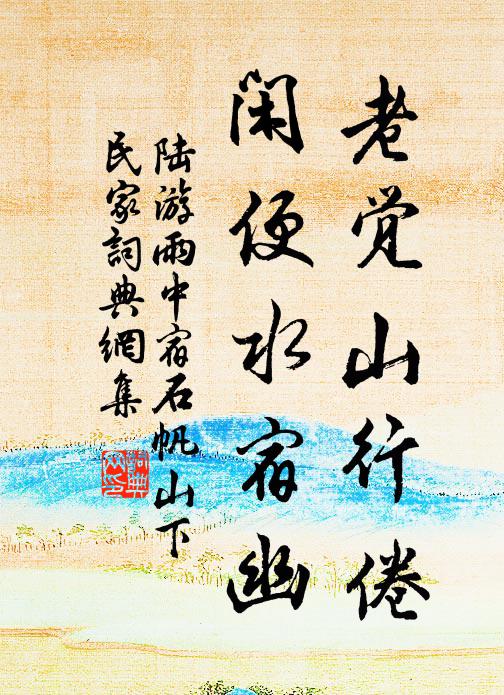 老觉山行倦
闲便水宿幽
陆游雨中宿石帆山下
民家词典网集